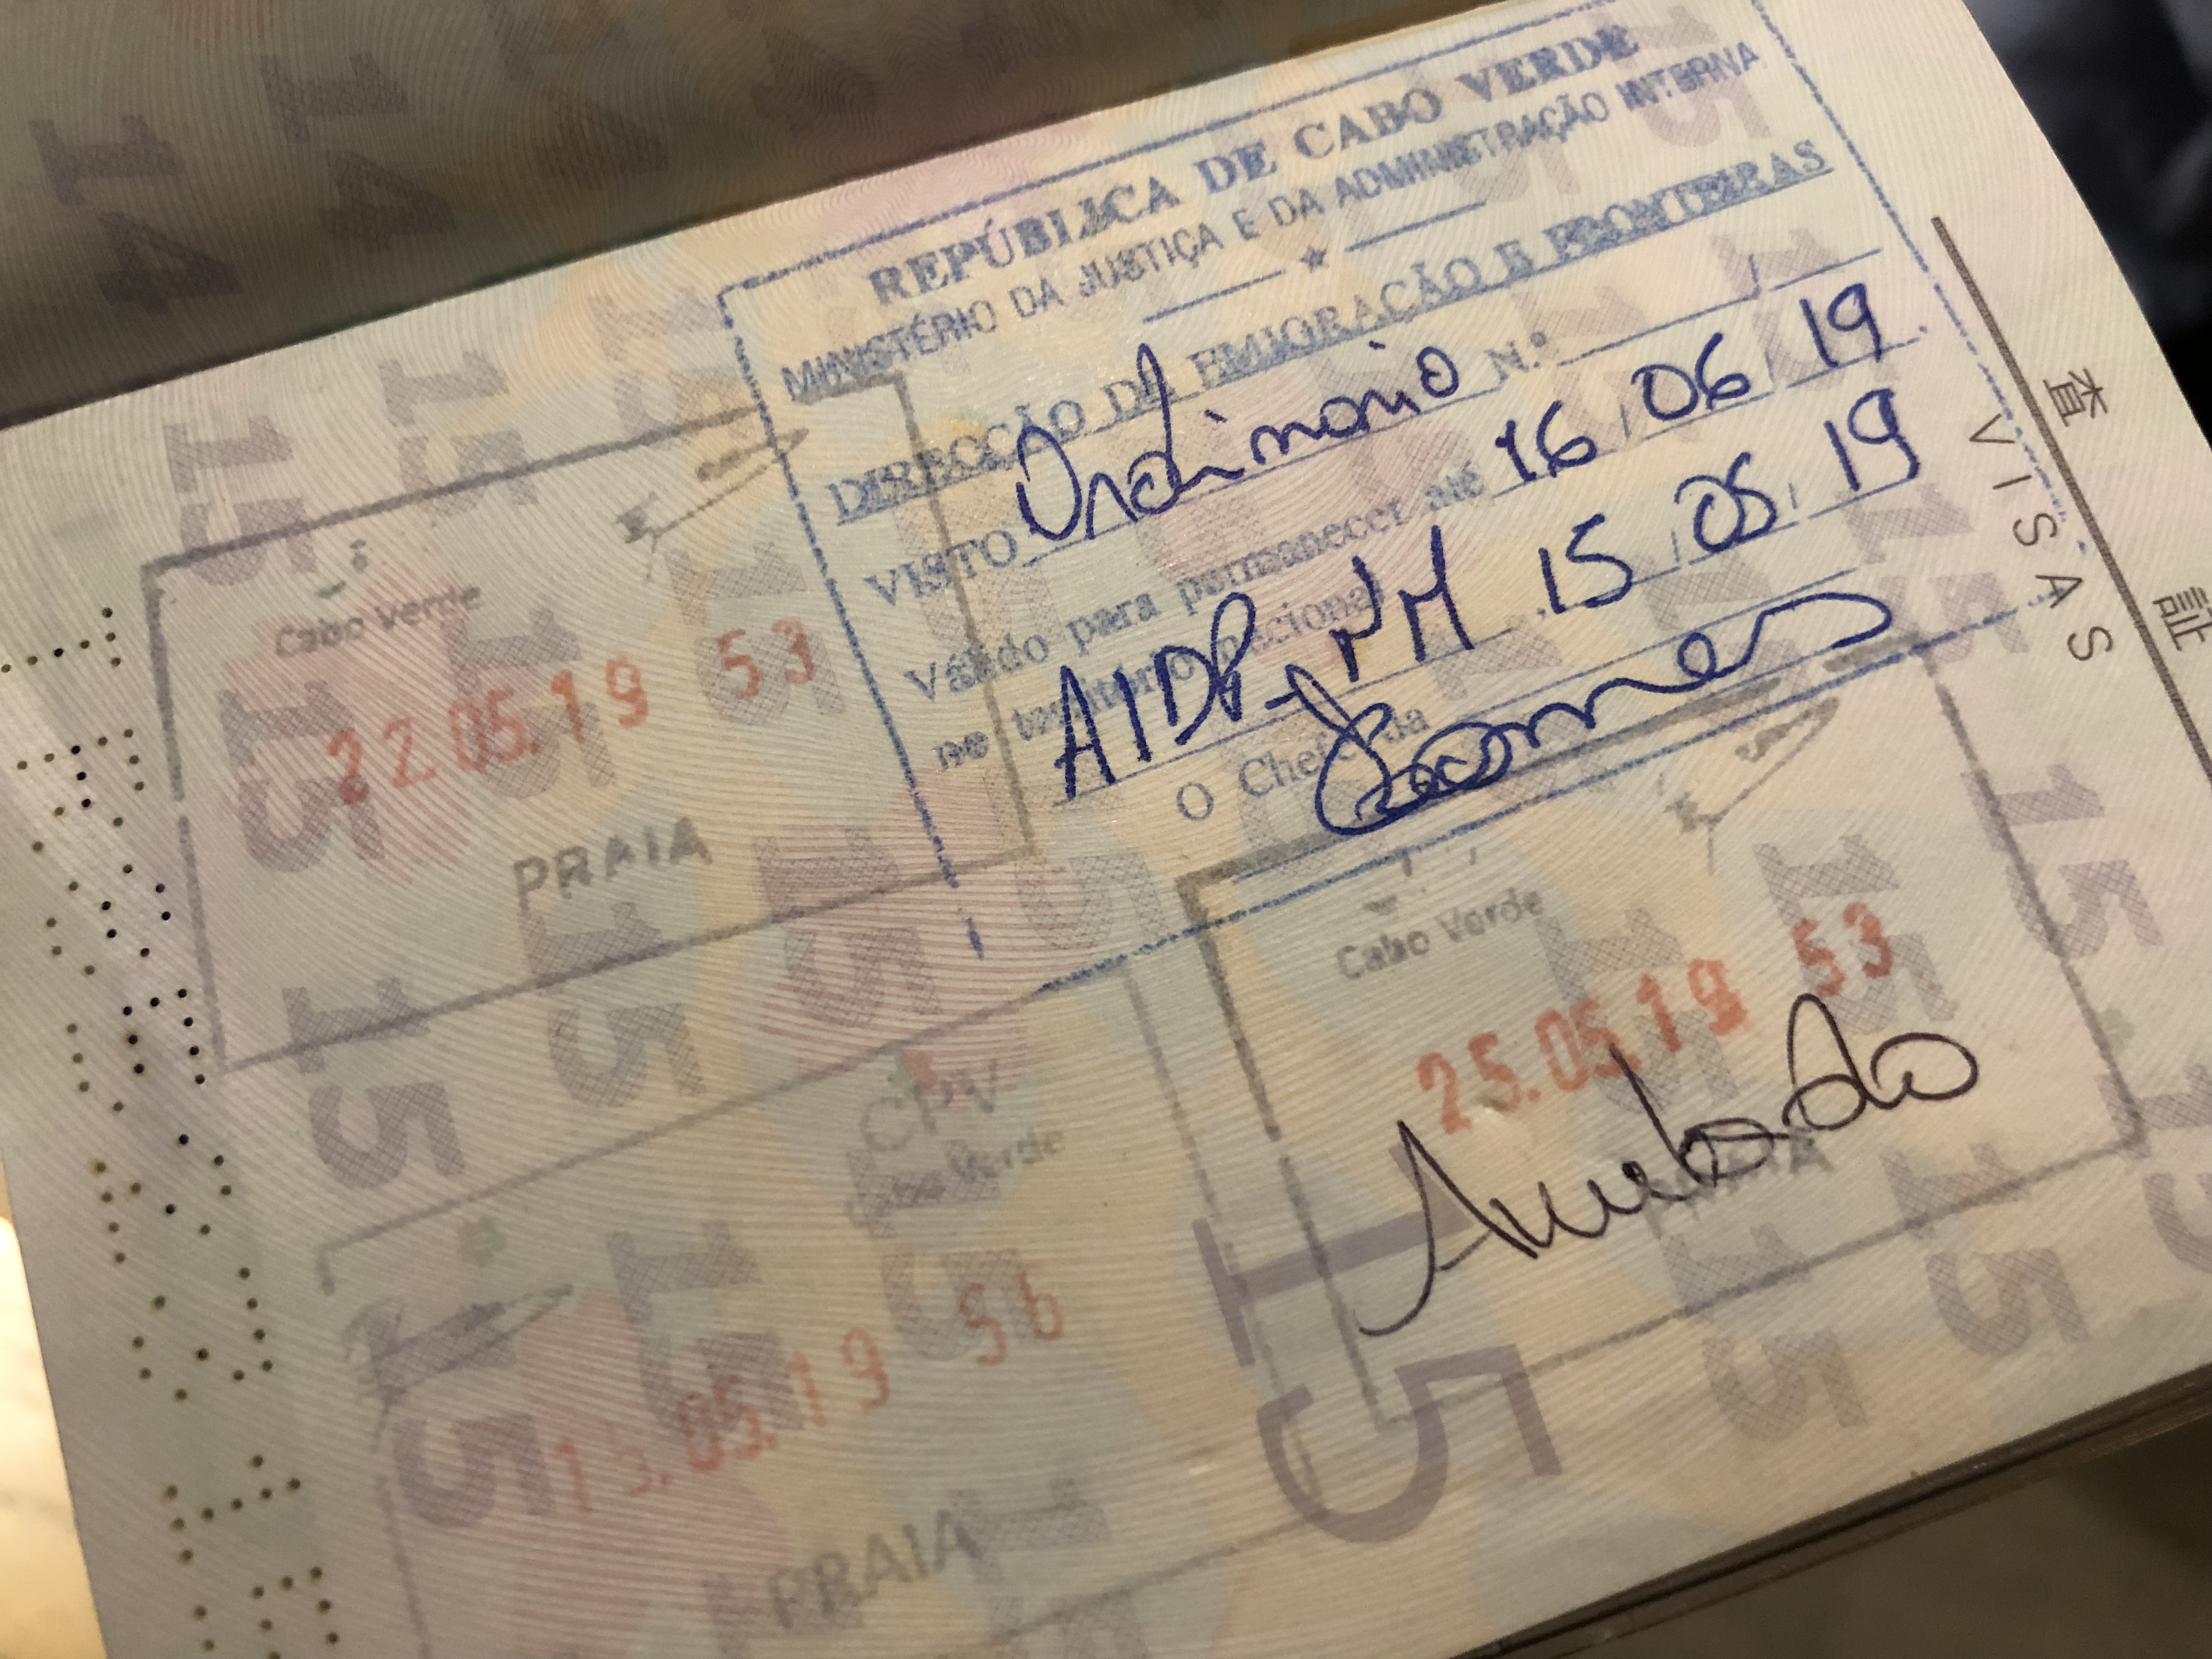 REPÚBLICA DE CABO VERDE
MINISTÉRIO DA JUSTIÇA E DA ADMINISTRAÇÃO INTERNA
DIRECÇÃO DE EMIGRAÇÃO E FRONTEIRAS
VISTO Ordinario N.º /
Válido para permanecer até 16 / 06 / 19
no território nacional
15 / 05 / 19
O Chefe da
査 証
VISAS
Cabo Verde
22.05.19 53
PRAIA
Cabo Verde
25.05.19 53
PRAIA
CPV
Cabo Verde
.05.19 56
PRAIA
15